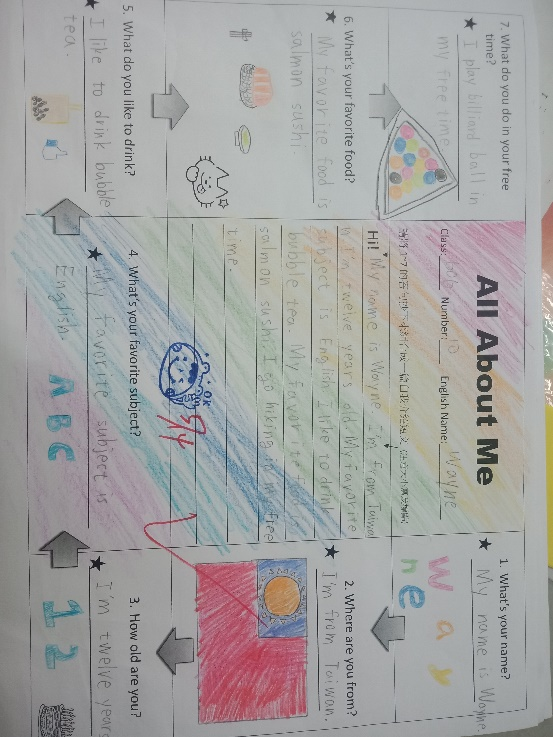 All About Me
Class: Number: 10 English Name: Wayne
Hi! My name is Wayne I'm from Taiwan
I'm twelve years old My favorite
subject is English I like to drink
bubble tea. My favorite food is
salmon sushi I go hiking in my free
time
OK
1. What's your name?
My name is Wayne
W a y
n e
2. Where are you from?
I'm from Taiwan.
3. How old are you?
I'm twelve years
1 2
4. What's your favorite subject?
My favorite subject is
English.
A B C
5. What do you like to drink?
I like to drink bubble
tea.
6. What's your favorite food?
My favorite food is
salmon sushi
7. What do you do in your free
time?
I play billiard ball in
my free time